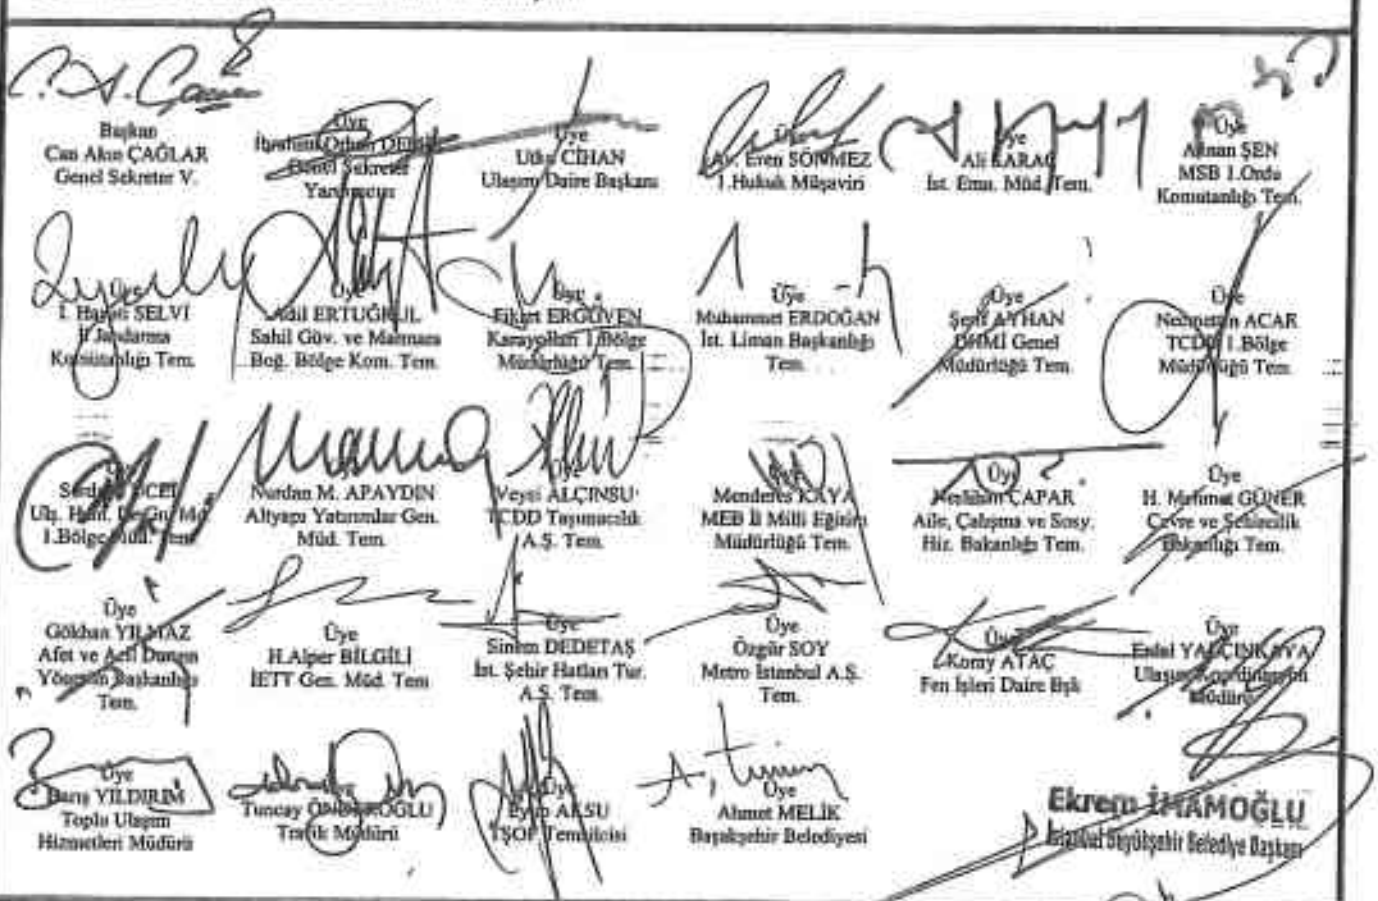 Başkan
Can Akın ÇAĞLAR
Genel Sekreter V.
Üye
İbrahim Orhan
Genel Sekreter
Yardımcısı
Üye
Utku CİHAN
Ulaşım Daire Başkanı
Üye
Av. Eren SÖNMEZ
1.Hukuk Müşaviri
Üye
Ali KARAÇ
İst. Emn. Müd. Tem.
Üye
Adnan ŞEN
MSB 1.Ordu
Komutanlığı Tem.
Üye
SELVİ
İl Jandarma
Komutanlığı Tem.
Üye
Adil ERTUĞRUL
Sahil Güv. ve Marmara
Boğ. Bölge Kom. Tem.
Üye
Fikret ERGÜVEN
Karayolları 1.Bölge
Müdürlüğü Tem.
Üye
Muhammet ERDOĞAN
İst. Liman Başkanlığı
Tem.
Üye
Şerif AYHAN
DHMİ Genel
Müdürlüğü Tem.
Üye
Necmettin ACAR
TCDD 1.Bölge
Müdürlüğü Tem.
1.Bölge Müd. Tem.
Nurdan M. APAYDIN
Altyapı Yatırımlar Gen.
Müd. Tem.
Üye
Veysi ALÇINSU
TCDD Taşımacılık
A.Ş. Tem.
Üye
Menderes KAYA
MEB İl Milli Eğitim
Müdürlüğü Tem.
Üye
Neslihan ÇAPAR
Aile, Çalışma ve Sosy.
Hiz. Bakanlığı Tem.
Üye
H. Mehmet GÜNER
Çevre ve Şehircilik
Bakanlığı Tem.
Üye
Gökhan YILMAZ
Afet ve Acil Durum
Yönetim Başkanlığı
Tem.
Üye
H.Alper BİLGİLİ
İETT Gen. Müd. Tem
Üye
Sinem DEDETAŞ
İst. Şehir Hatları Tur.
A.Ş. Tem.
Üye
Özgür SOY
Metro İstanbul A.Ş.
Tem.
Üye
Koray ATAÇ
Fen İşleri Daire Bşk
Üye
Erdal YALÇINKAYA
Ulaşım Koordinasyon
Müdürü
Üye
Barış YILDIRIM
Toplu Ulaşım
Hizmetleri Müdürü
Tuncay
Trafik Müdürü
Üye
Eyüp AKSU
TŞOF Temsilcisi
Üye
Ahmet MELİK
Başakşehir Belediyesi
Ekrem İMAMOĞLU
İstanbul Büyükşehir Belediye Başkanı